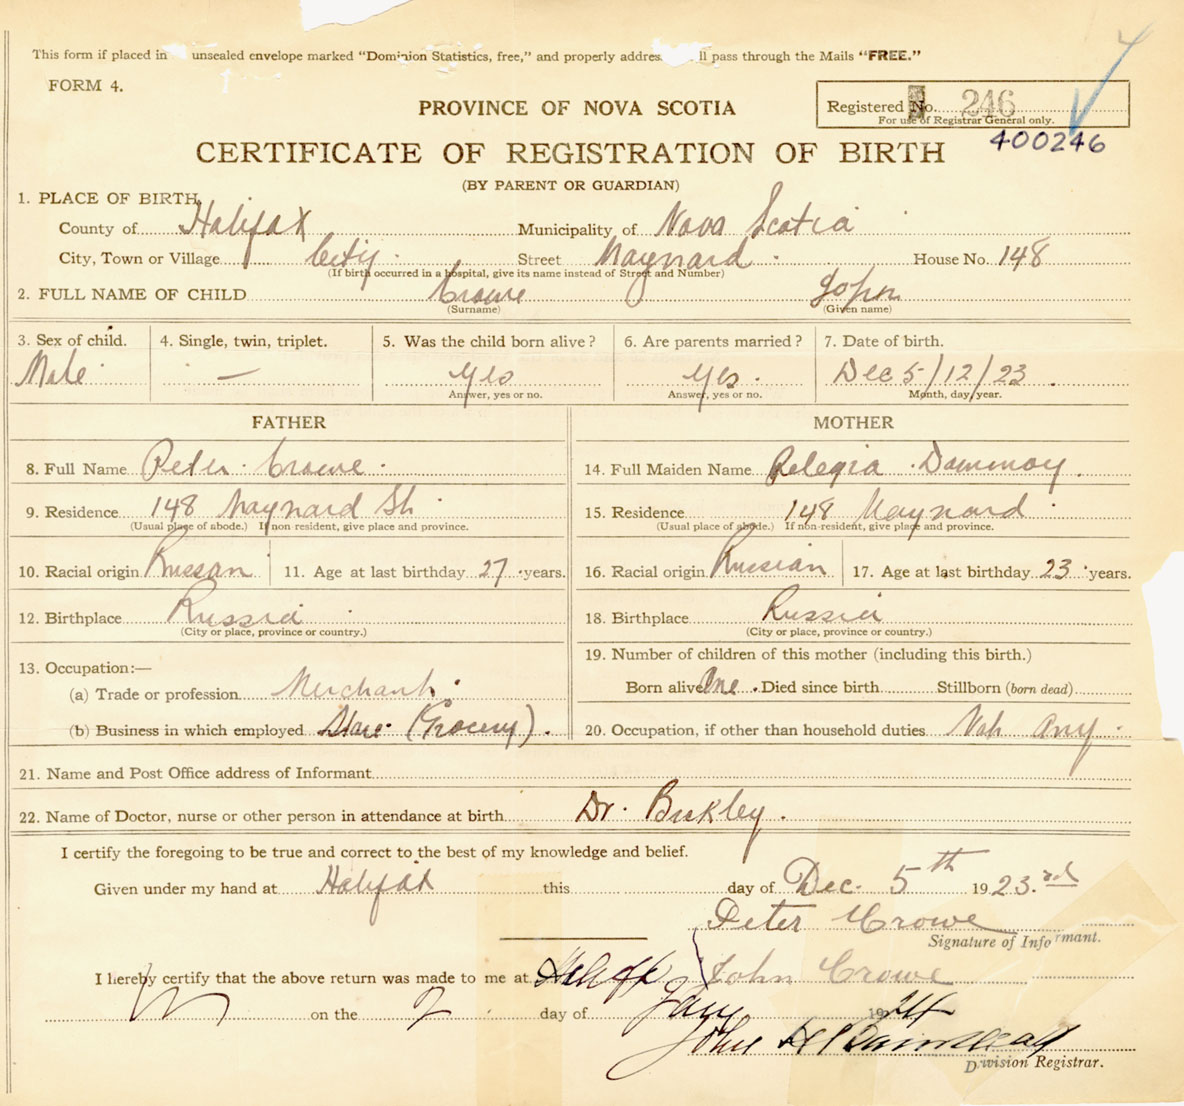 This form if placed in unsealed envelope marked "Dominion Statistics, free," and properly addres ll pass through the Mails "FREE."
FORM 4.
PROVINCE OF NOVA SCOTIA
Registered No. 246
For use of Registrar General only.
400246
CERTIFICATE OF REGISTRATION OF BIRTH
(BY PARENT OR GUARDIAN)
1. PLACE OF BIRTH
County of Halifax Municipality of Nova Scotia
City, Town or Village City Street Maynard House No. 148
(If birth occurred in a hospital, give its name instead of Street and Number)
2. FULL NAME OF CHILD Crowe John
(Surname) (Given name)
3. Sex of child. 4. Single, twin, triplet. 5. Was the child born alive? 6. Are parents married? 7. Date of birth.
Male — Yes Yes. Dec 5/12/23
Answer, yes or no. Answer, yes or no. Month, day, year.
FATHER MOTHER
8. Full Name Peter Crowe 14. Full Maiden Name
9. Residence 148 Maynard St. 15. Residence 148 Maynard
(Usual place of abode.) If non-resident, give place and province. (Usual place of abode.) If non-resident, give place and province.
10. Racial origin Russan 11. Age at last birthday 27 years. 16. Racial origin Russian 17. Age at last birthday 23 years.
12. Birthplace Russia 18. Birthplace Russia
(City or place, province or country.) (City or place, province or country.)
13. Occupation:— 19. Number of children of this mother (including this birth.)
(a) Trade or profession Merchant. Born alive One. Died since birth Stillborn (born dead)
(b) Business in which employed Store (Grocery). 20. Occupation, if other than household duties Not any
21. Name and Post Office address of Informant
22. Name of Doctor, nurse or other person in attendance at birth Dr.
I certify the foregoing to be true and correct to the best of my knowledge and belief.
Given under my hand at Halifax this day of Dec. 5th 1923.rd
Peter Crowe
Signature of Informant.
I hereby certify that the above return was made to me at John Crowe
on the day of Jany 1924
John
Division Registrar.